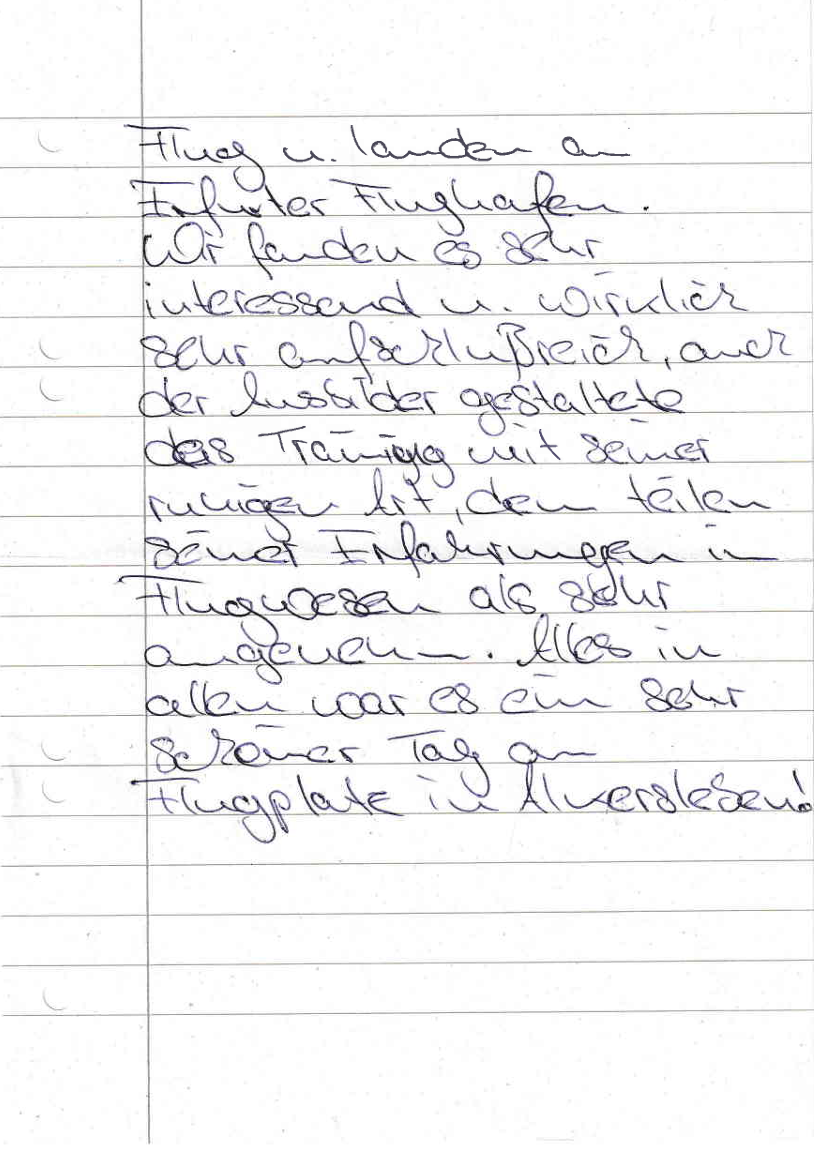 Flug u. landen am
Erfurter Flughafen.
Wir fanden es sehr
interessand u. wirklich
sehr aufschlußreich, auch
der Ausbilder gestaltete
das Training mit seiner
ruhigen Art, dem teilen
seiner Erfahrungen im
Flugwesen als sehr
angenehm. Alles in
allen war es ein sehr
schöner Tag am
Flugplatz in Alkersleben!